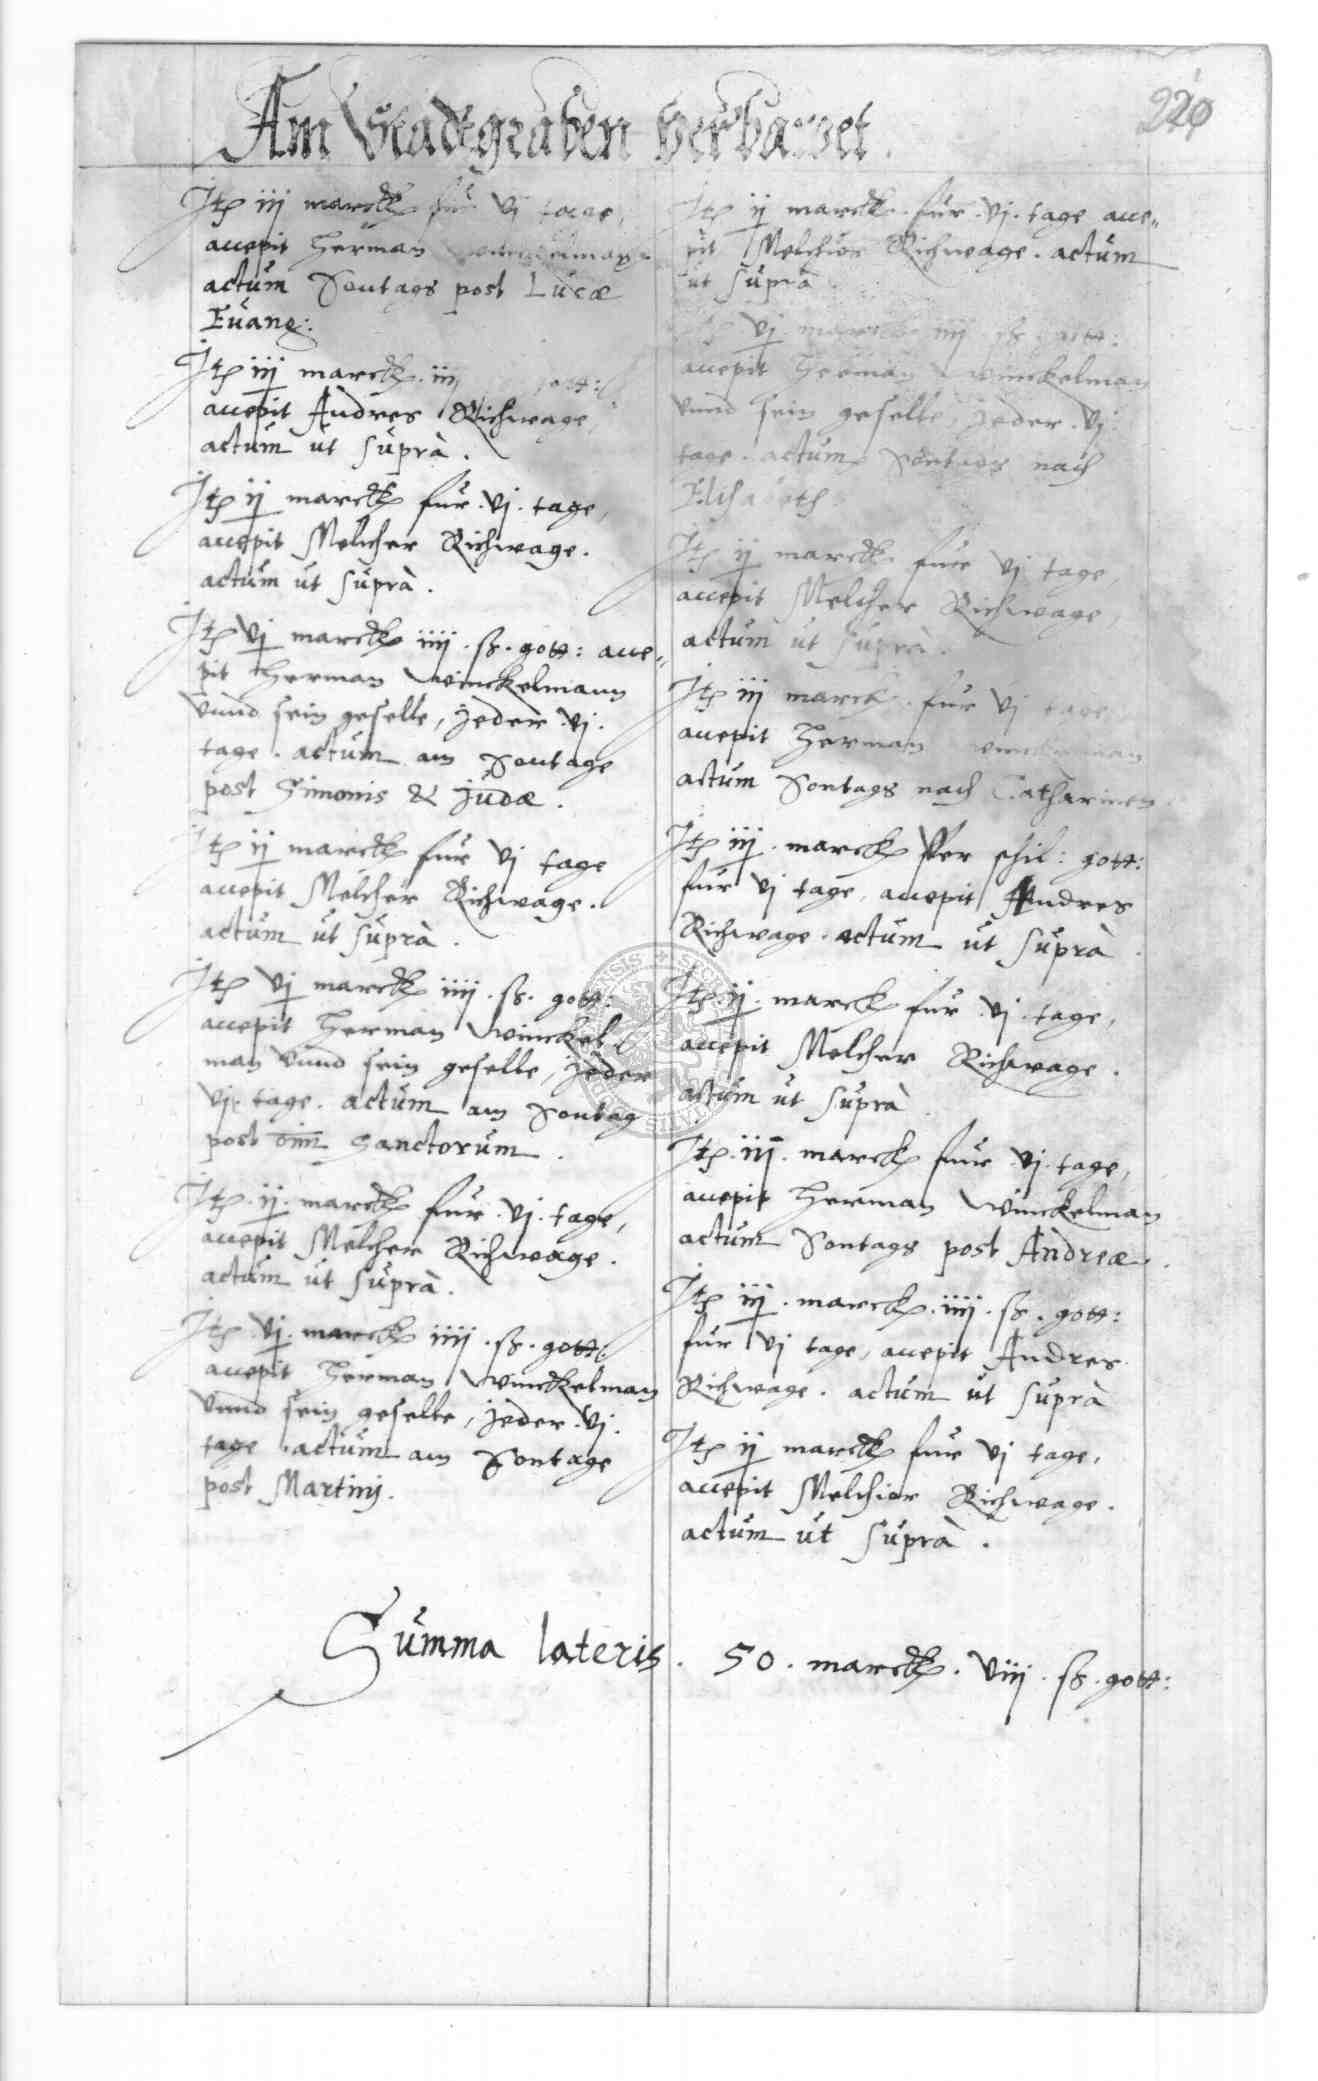 220
Am Stadtgraben verbawet.
Itē iij marck für vj tage,
accepit Herman
actum Sontags post Lucæ
Euang:
Itē iij marck. iiij gott:
accepit Andres Richwage,
actum ut suprà.
Itē ij marck für .vj. tage,
accepit Melcher Richwage.
actum ut suprà.
Itē vj marck iiij .ß. gott: acce=
pit Herman Winckelmann
vnnd sein geselle, jeder .vj.
tage. actum am Sontage
post Simonis & Judæ.
Itē ij marck für vj tage
accepit Melcher Richwage.
actum ut suprà.
Itē vj marck iiij .ß. gott:
accepit Herman Winckel
man vnnd sein geselle, jeder
vj. tage. actum am Sontag
post oīm Sanctorum.
Itē .ij. marck für .vj. tage,
accepit Melcher Richwage.
actum ut suprà.
Itē .vj. marck iiij .ß. gott:
accepit Herman Winckelman
vnnd sein geselle, jeder .vj.
tage. actum am Sontage
post Martinj.
Itē ij marck. für .vj. tage acce=
pit Melchior Richwage. actum
ut suprà
Itē vj. marck iiij ß gott:
accepit Herman Winckelman
vnnd sein geselle, jeder .vj.
tage. actum Sontags nach
Elisabeth.
Itē ij marck. für vj tage
accepit Melcher Richwage,
actum ut suprà.
Itē iij marck. für vj tage,
accepit Herman Winckelman
actum Sontags nach Catharinen
Itē iij. marck vier schil: gott:
für vj tage, accepit Andres
Richwage. actum ut suprà.
Itē ij. marck für .vj. tage,
accepit Melcher Richwage.
actum ut suprà
Itē .iij. marck für .vj. tage,
accepit Herman Winckelman
actum Sontags post Andreæ.
Itē iij. marck. iiij. ß. gott:
für vj tage, accepit Andres
Richwage. actum ut suprà
Itē ij marck für vj tage,
accepit Melchior Richwage.
actum ut suprà.
Summa lateris. 50. marck. viij. ß. gott: